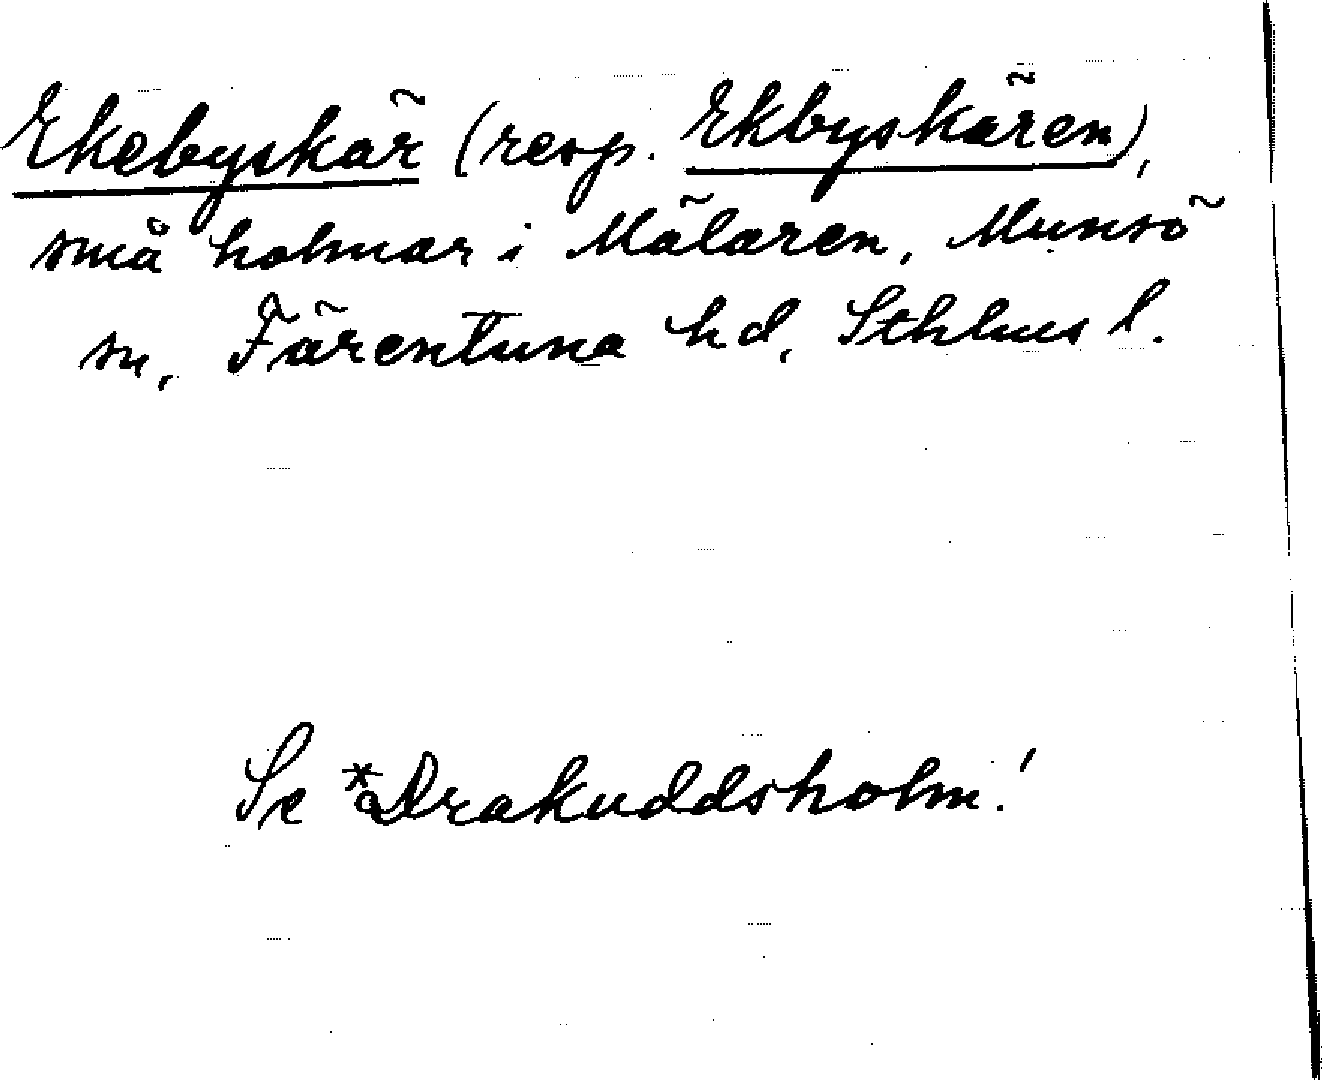 Ekebyskär (resp. Ekbyskären),
små holmar i Mälaren, Munsö
sn, Färentuna hd, Sthlms l.
Se *Drakuddsholm!